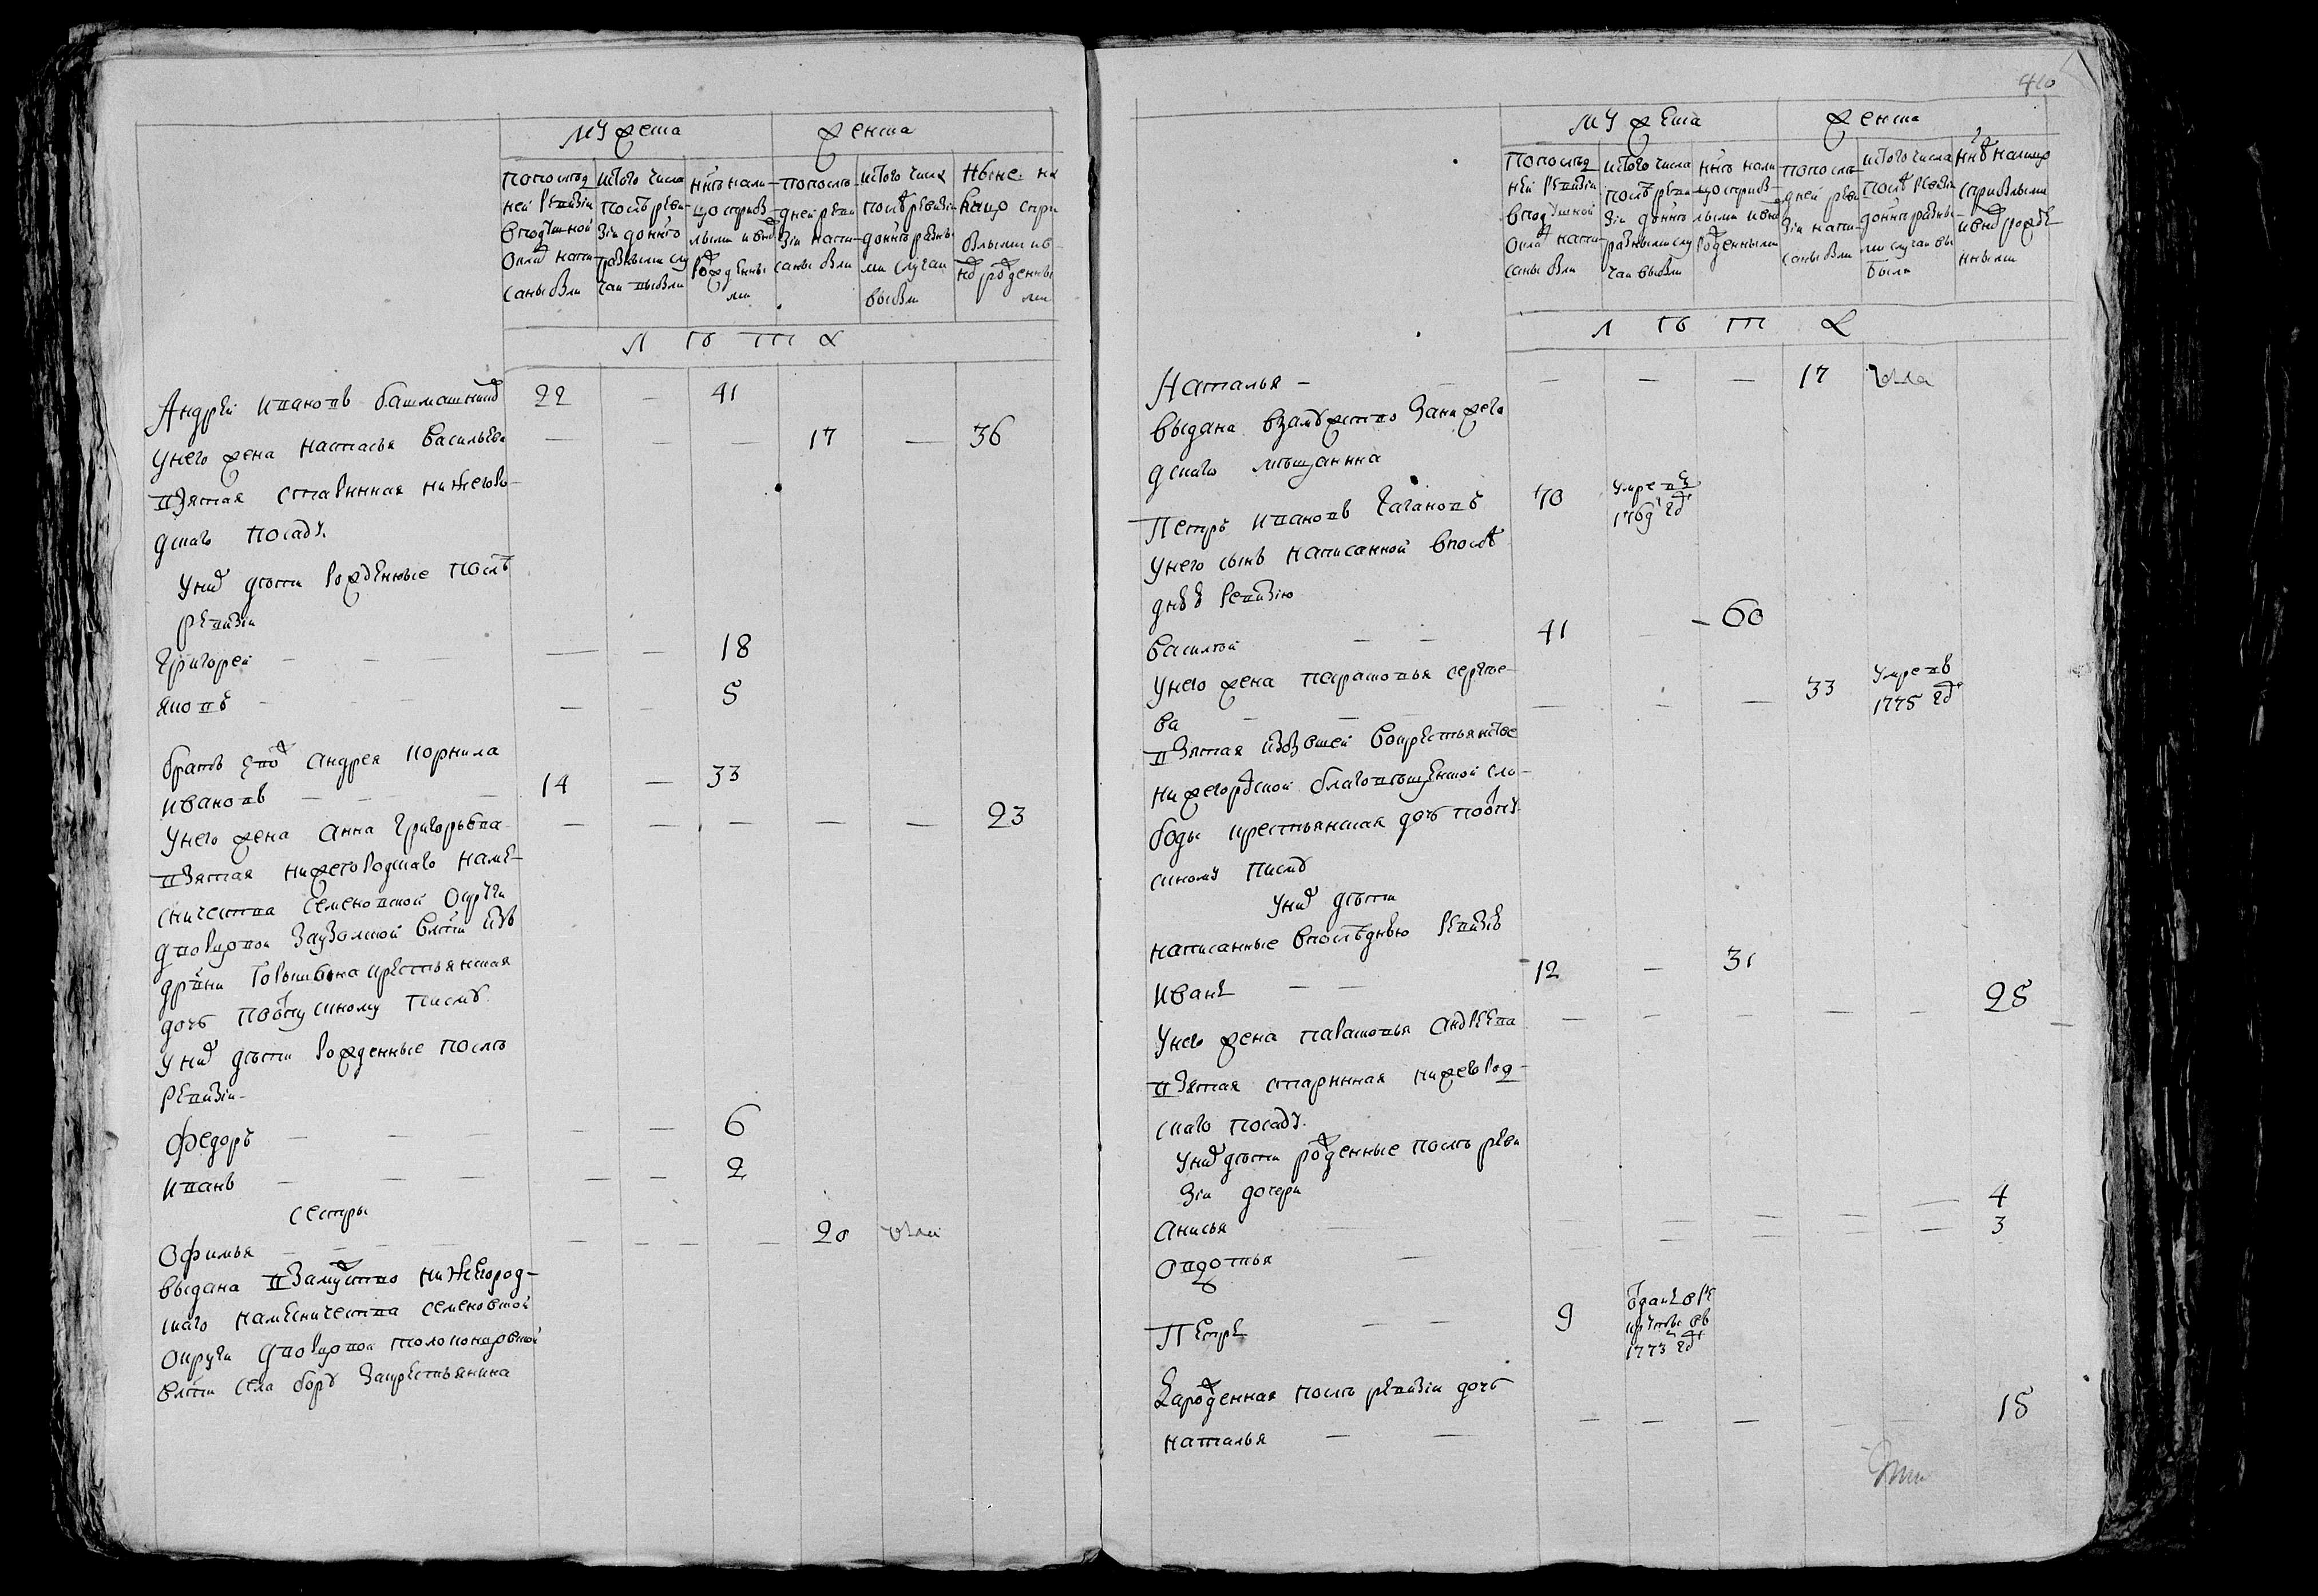 мужеска
женска
по послед
ней ревизии
в подушной
оклад напи
саны были
ис того числа
после реви
зии до ниго
разными слу
чаи выбыли
ниго нали
цо с прибы
лыми и вно
рожденны
ми
по послѣ
дней реви
зии напи
саны были
ис того числа
после ревизии
до ниго разны
ми случаи
выбыли
ныне на
лицо с при
былыми и в
но рожденны
ми
л ѣ т а
Андрей Иванов башмашник 22 — 41
у него жена Настасья Васильева — — — 17 — 36
взятая старинная нижегоро
дскаго посаду.
у них дѣти рожденные послѣ
ревизии
Григорей — — — — — 18
Яков — — — — 5
брат ево Андрея Корнила
Иванов — — — 14 — 33
у него жена Анна Григорьева — — — — — 23
взятая нижегородскаго наме
сничества Семеновской округи
дворцовой Заузолской влсти из
дрвни крестьянская
дочь по отпускному писму
у них дѣти рожденные послѣ
ревизии
Федоръ — — — — — 6
Иванъ — — — — — 2
сестры
Офимья — — — — — — — 20
выдана в замужство нижегород
скаго намесничества Семеновской
округи дворцовой Толоконцовской
влсти села Бору за крестьянина
410
мужеска
женска
по послед
ней ревизии
в подушной
оклад напи
саны были
ис того числа
послѣ реви
зии до ниго
разными слу
чаи выбыли
ниго нали
цо с прибы
лыми и вно
рожденными
по послѣ
дней реви
зии напи
саны были
ис того числа
послѣ ревизии
до ниго разны
ми случаи вы
были
нне налицо
с прибылыми
и вно рожде
нными
л ѣ т а
Наталья — — — — 17
выдана в замужство за нижего
дскаго мѣщанина
Петръ Иванов Чаганов 70 умре в
1769 гд
у него сынъ написанной в послѣ
днюю ревизию
Василей — — 41 — — 60
у него жена Парасковья Сергѣе
ва — — — — — — 33 умре в
1775 гд
взятая из бывшей в крестьянстве
нижегородской Благовѣщенской сло
боды крестьянская дочь по отпу
скному писму
у них дѣти
написанные в послѣднюю ревизию
Иванъ — — 12 — 31
у него жена Парасковья Андреева — — — — — 25
взятая старинная нижегород
скаго посаду.
у них дѣти рожденные послѣ реви
зии дочери
Анисья — — — — — — 4
Овдотья — — — — — — 3
Петръ — — 9 отданъ в ре
круты в
1773 гд
Рожденная послѣ ревизии дочь
Наталья — — — — — — — 15